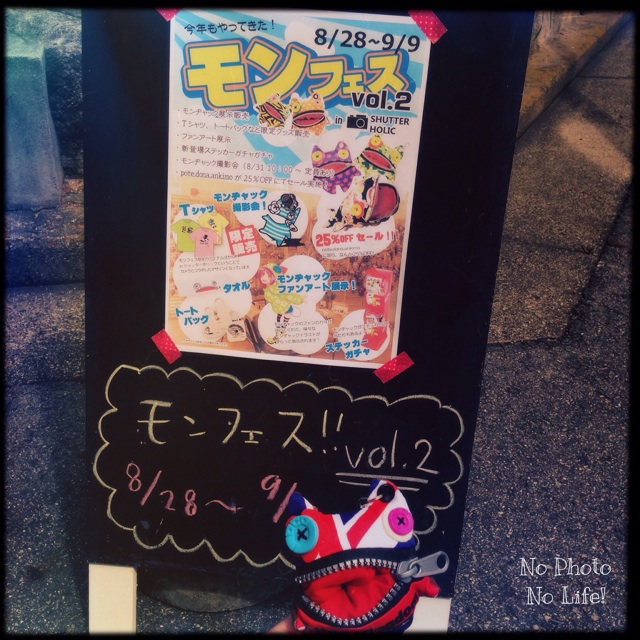 今年もやってきた！
8/28~9/9
モンフェス
vol.2
in SHUTTER
HOLIC
・モンチャック展示販売
・Tシャツ、トートバッグなど限定グッズ販売
・ファンアート展示
・新登場ステッカーガチャガチャ
・モンチャック撮影会 (8/31 10:00～ 定員あり)
・pote.dona.aokimo が 25%OFF にてセール実施
モンチャック
撮影会！
Tシャツ
限定
販売
25%OFF セール!!
タオル
モンチャック
ファンアート展示！
トート
バッグ
ステッカー
ガチャ
モンフェス!!
vol.2
8/28～ 9/
No Photo
No Life!